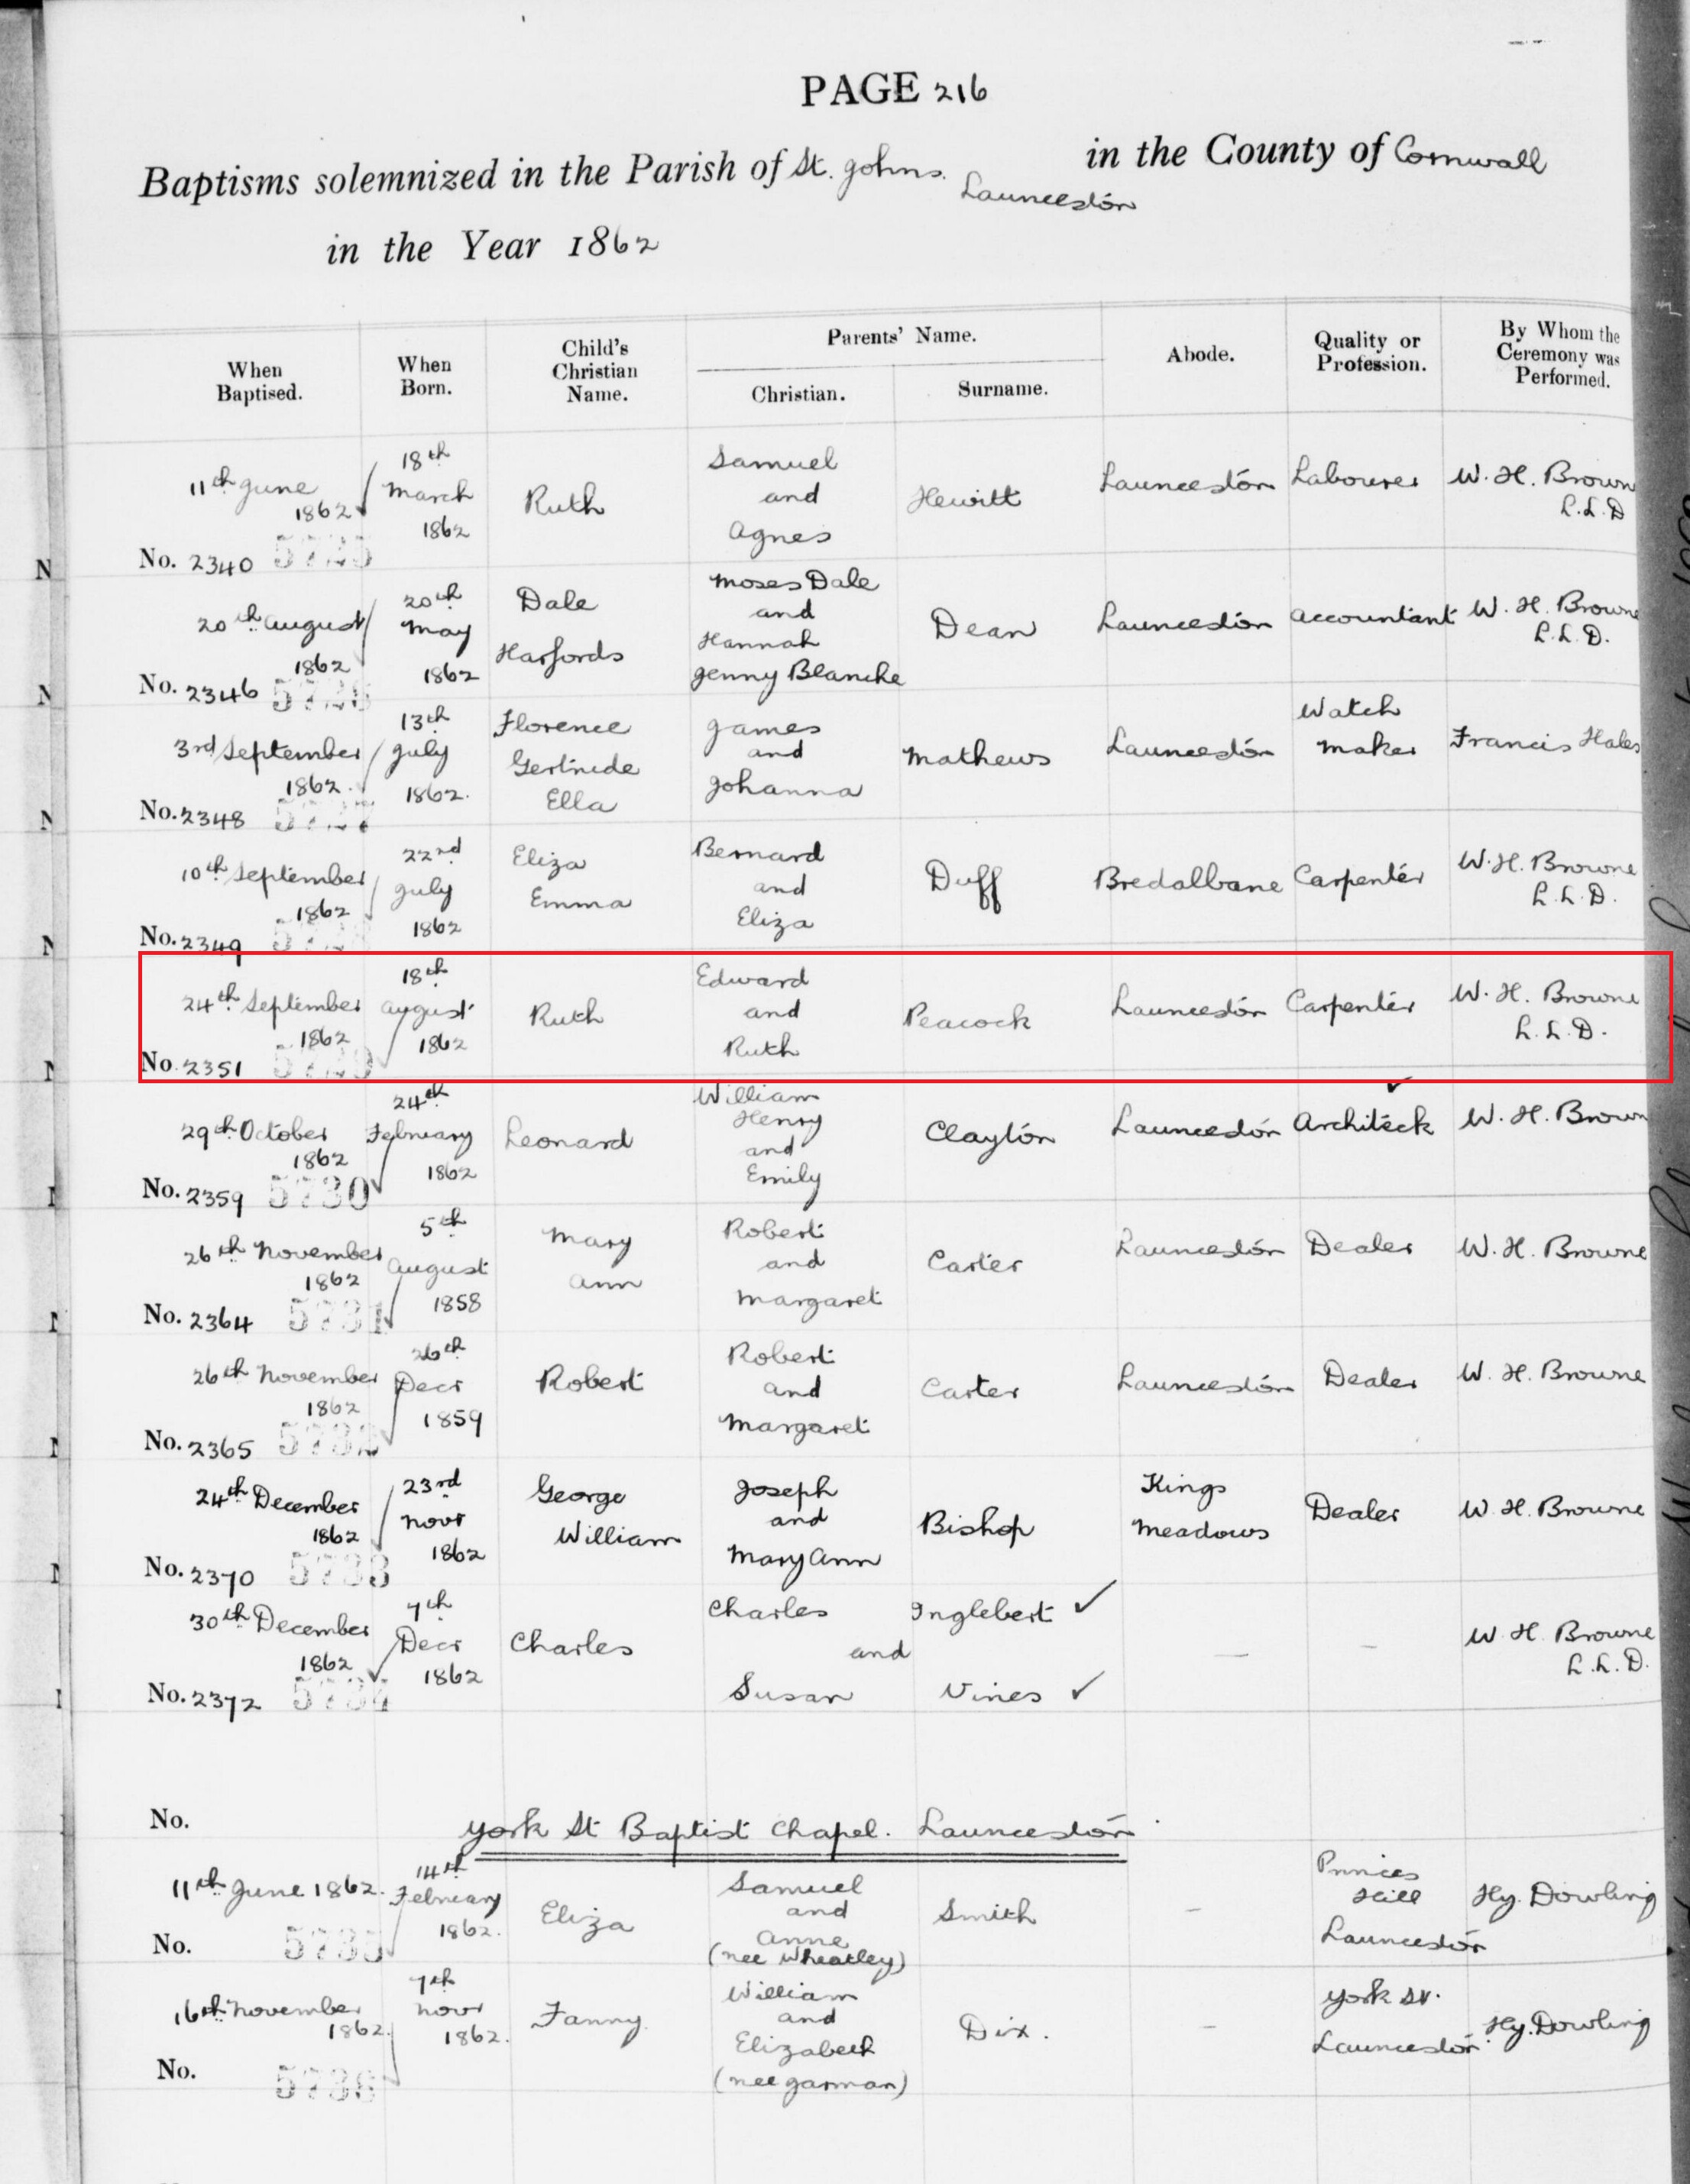 PAGE 216
Baptisms solemnized in the Parish of St. Johns. Launceston in the County of Cornwall
in the Year 1862
When Baptised. When Born. Child's Christian Name. Parents' Name. Christian. Surname. Abode. Quality or Profession. By Whom the Ceremony was Performed.
11th June 1862 18th March 1862 Ruth Samuel and Agnes Hewitt Launceston Labourer W. H. Brown L.L.D
No. 2340 5725
20th August 1862 20th May 1862 Dale Harfords Moses Dale and Hannah Jenny Blanche Dean Launceston Accountant W. H. Browne L.L.D.
No. 2346 5726
3rd September 1862. 13th July 1862. Florence Gertrude Ella James and Johanna Mathews Launceston Watch Maker Francis Hales
No. 2348 5727
10th September 1862 22nd July 1862 Eliza Emma Bernard and Eliza Duff Bredalbane Carpenter W. H. Browne L.L.D.
No. 2349 5728
24th September 1862 18th August 1862 Ruth Edward and Ruth Peacock Launceston Carpenter W. H. Browne L.L.D.
No. 2351 5729
29th October 1862 24th February 1862 Leonard William Henry and Emily Clayton Launceston Architeck W. H. Brown
No. 2359 5730
26th November 1862 5th August 1858 Mary Ann Robert and Margaret Carter Launceston Dealer W. H. Browne
No. 2364 5731
26th November 1862 26th Decr 1859 Robert Robert and Margaret Carter Launceston Dealer W. H. Browne
No. 2365 5732
24th December 1862 23rd Novr 1862 George William Joseph and Mary Ann Bishop Kings Meadows Dealer W. H. Browne
No. 2370 5733
30th December 1862 7th Decr 1862 Charles Charles Inglebert and Susan Vines — – W. H. Browne L.L.D.
No. 2372 5734
No. York St Baptist Chapel. Launceston
11th June 1862. 14th February 1862. Eliza Samuel and Anne (nee Wheatley) Smith – Princes Hill Launceston Hy. Dowling
No. 5735
16th November 1862. 7th Novr 1862. Fanny. William and Elizabeth (nee Garman) Dix. – York St. Launceston. Hy. Dowling
No. 5736